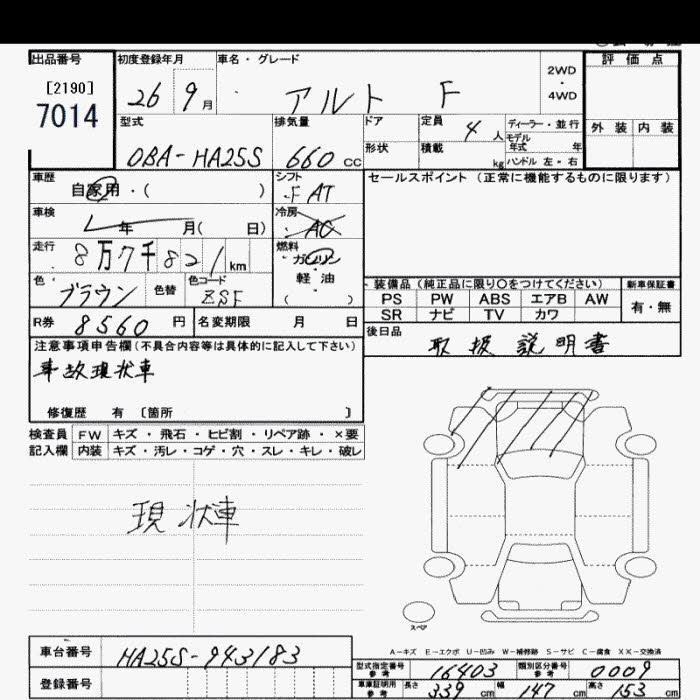 出品番号
[2190]
7014
初度登録年月
26 9月
車名・グレード
アルト F
2WD
・
4WD
評価点
外装 内装
型式
DBA-HA25S
排気量
660 CC
ドア
形状
定員
4人
積載
kg
ディーラー・並行
モデル
年式 年
ハンドル 左・右
車歴
自家用・( )
シフト
F AT
セールスポイント (正常に機能するものに限ります)
車検
年 月( 日)
冷房
AC
走行
8万7千821km
燃料
ガソリン
・
軽油
( )
色
ブラウン
色替
色コード
ZSF
装備品 (純正品に限り〇をつけてください)
PS PW ABS エアB AW
SR ナビ TV カワ
新車保証書
有・無
R券 8560円
名変期限 月 日
後日品
取扱説明書
注意事項申告欄 (不具合内容等は具体的に記入して下さい)
事故現状車
修復歴 有 〔箇所 〕
検査員
記入欄
FW キズ・飛石・ヒビ割・リペア跡・×要
内装 キズ・汚レ・コゲ・穴・スレ・キレ・破レ
現状車
スペア
A-キズ E-エクボ U-凹み W-補修跡 S-サビ C-腐食 XX-交換済
車台番号 HA25S-943183
登録番号
型式指定番号
参考
16403
類別区分番号
参考
0009
車庫証明用
参考
長さ 339cm 幅 147cm 高さ 153cm